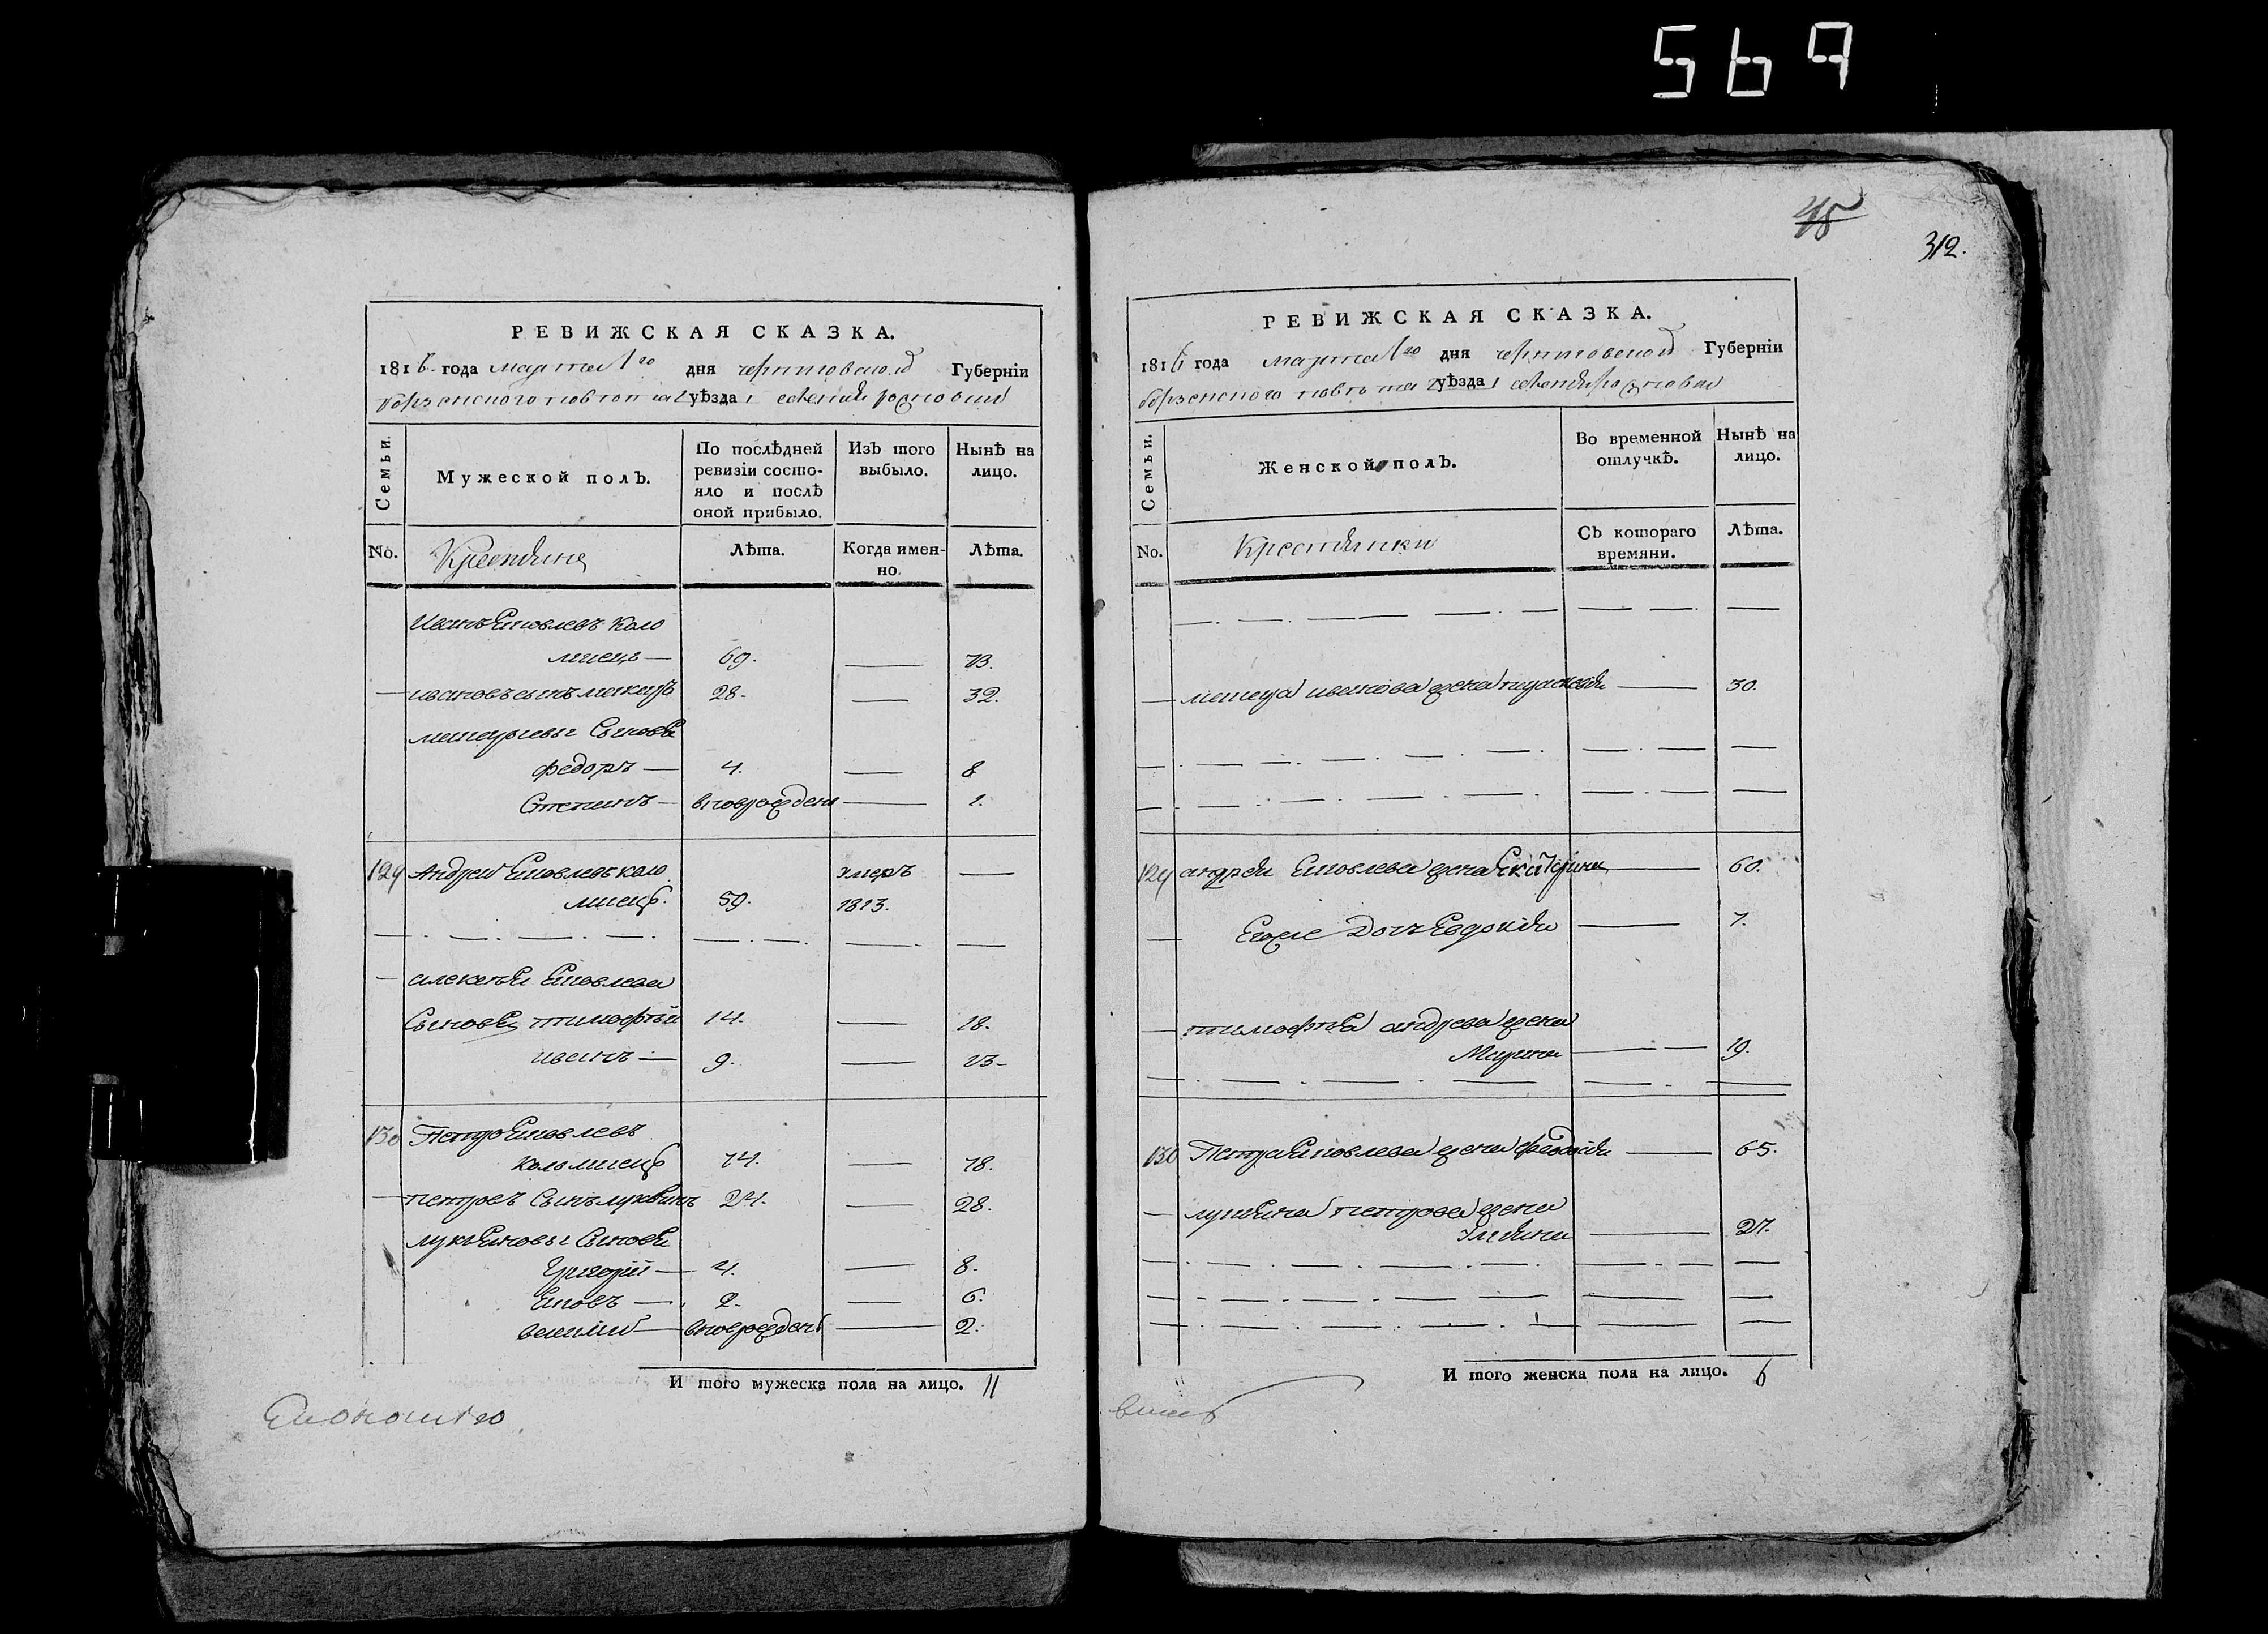 569
45
312.
РЕВИЖСКАЯ СКАЗКА.
1816 года марта 1го дня черниговской Губерніи
борзенского повета уѣзда селения
Семьи.
Мужеской полЪ.
По послѣдней ревизіи состояло и послѣ оной прибыло.
ИзЪ того выбыло.
Нынѣ на лицо.
No.
Крестьяне
Лѣта.
Когда именно.
Лѣта.
Иванъ Яковлевъ Коло
миецъ — 69. — 73.
— ивановъ сынъ 28. — 32.
сыновья
федоръ — 4. — 8
Степанъ — вновьрожденъ — 1.
129 Андрей Яковлевъ коло умеръ —
миецъ. 59. 1813.
— Яковлева
Сыновья тимофѣй 14. — 18.
иванъ — 9. — 13.
130 Петро Яковлевъ
коломиецъ 74. — 78.
— петровъ Сынъ лукьянъ 24. — 28.
лукьяновы Сыновья
Григорій — 4. — 8.
Яковъ — 2. — 6.
василий — вновьрожденъ — 2.
И того мужеска пола на лицо. 11
РЕВИЖСКАЯ СКАЗКА.
1816 года марта 1го дня черниговской Губерніи
борзенского повета уѣзда селения
Семьи.
Женской полЪ.
Во временной отлучкѣ.
Нынѣ на лицо.
No.
Крестьянки
СЪ котораго времяни.
Лѣта.
— иванова жена — 30.
129 андрея Яковлева жена Екатерина — 60.
— Егоже Дочь Евдокия — 7.
— тимофѣя андреева жена
Марина — 19.
130 Петра Яковлева жена феодосия — 65.
— лукьяна петрова жена
Ульяна — 27.
И того женска пола на лицо. 6